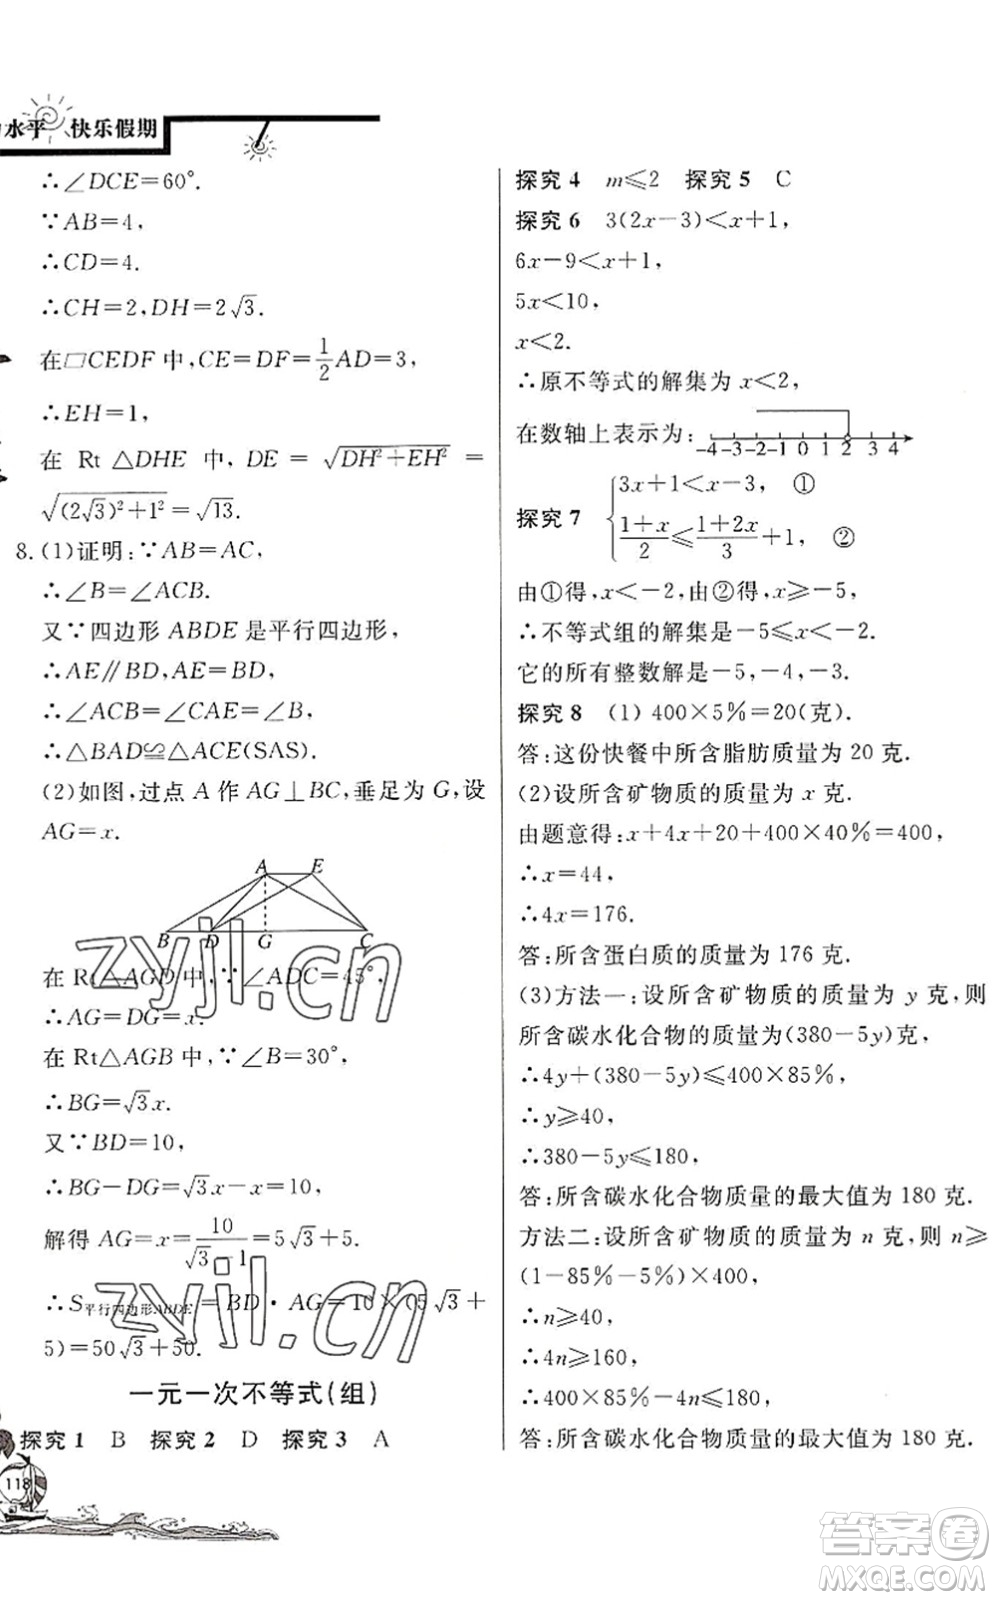 水平 快乐假期
∴∠DCE=60°.
∵AB=4,
∴CD=4.
∴CH=2,DH=2√3.
在□CEDF中,CE=DF=1/2AD=3,
∴EH=1,
在 Rt △DHE 中, DE = √(DH²+EH²) =
√((2√3)²+1²)=√13.
8.(1)证明:∵AB=AC,
∴∠B=∠ACB.
又∵四边形ABDE是平行四边形,
∴AE∥BD,AE=BD,
∴∠ACB=∠CAE=∠B,
∴△BAD≌△ACE(SAS).
(2)如图,过点A作AG⊥BC,垂足为G,设
AG=x.
A E
B D G C
在Rt△AGD中,∵∠ADC=45°,
∴AG=DG=x.
在Rt△AGB中,∵∠B=30°,
∴BG=√3x.
又∵BD=10,
∴BG-DG=√3x-x=10,
解得AG=x=10/(√3-1)=5√3+5.
∴S平行四边形ABDE=BD·AG=10×(5√3+
5)=50√3+50.
一元一次不等式(组)
探究1 B 探究2 D 探究3 A
118
探究4 m≤2 探究5 C
探究6 3(2x-3)<x+1,
6x-9<x+1,
5x<10,
x<2.
∴原不等式的解集为x<2,
在数轴上表示为: -4 -3 -2 -1 0 1 2 3 4
探究7 {3x+1<x-3, ①
(1+x)/2≤(1+2x)/3+1, ②
由①得,x<-2,由②得,x≥-5,
∴不等式组的解集是-5≤x<-2.
它的所有整数解是-5,-4,-3.
探究8 (1)400×5%=20(克).
答:这份快餐中所含脂肪质量为20克.
(2)设所含矿物质的质量为x克.
由题意得:x+4x+20+400×40%=400,
∴x=44,
∴4x=176.
答:所含蛋白质的质量为176克.
(3)方法一:设所含矿物质的质量为y克,则
所含碳水化合物的质量为(380-5y)克,
∴4y+(380-5y)≤400×85%,
∴y≥40,
∴380-5y≤180,
答:所含碳水化合物质量的最大值为180克.
方法二:设所含矿物质的质量为n克,则n≥
(1-85%-5%)×400,
∴n≥40,
∴4n≥160,
∴400×85%-4n≤180,
答:所含碳水化合物质量的最大值为180克.
zyjl.cn
zyjl.cn
答案卷
MXQE.COM